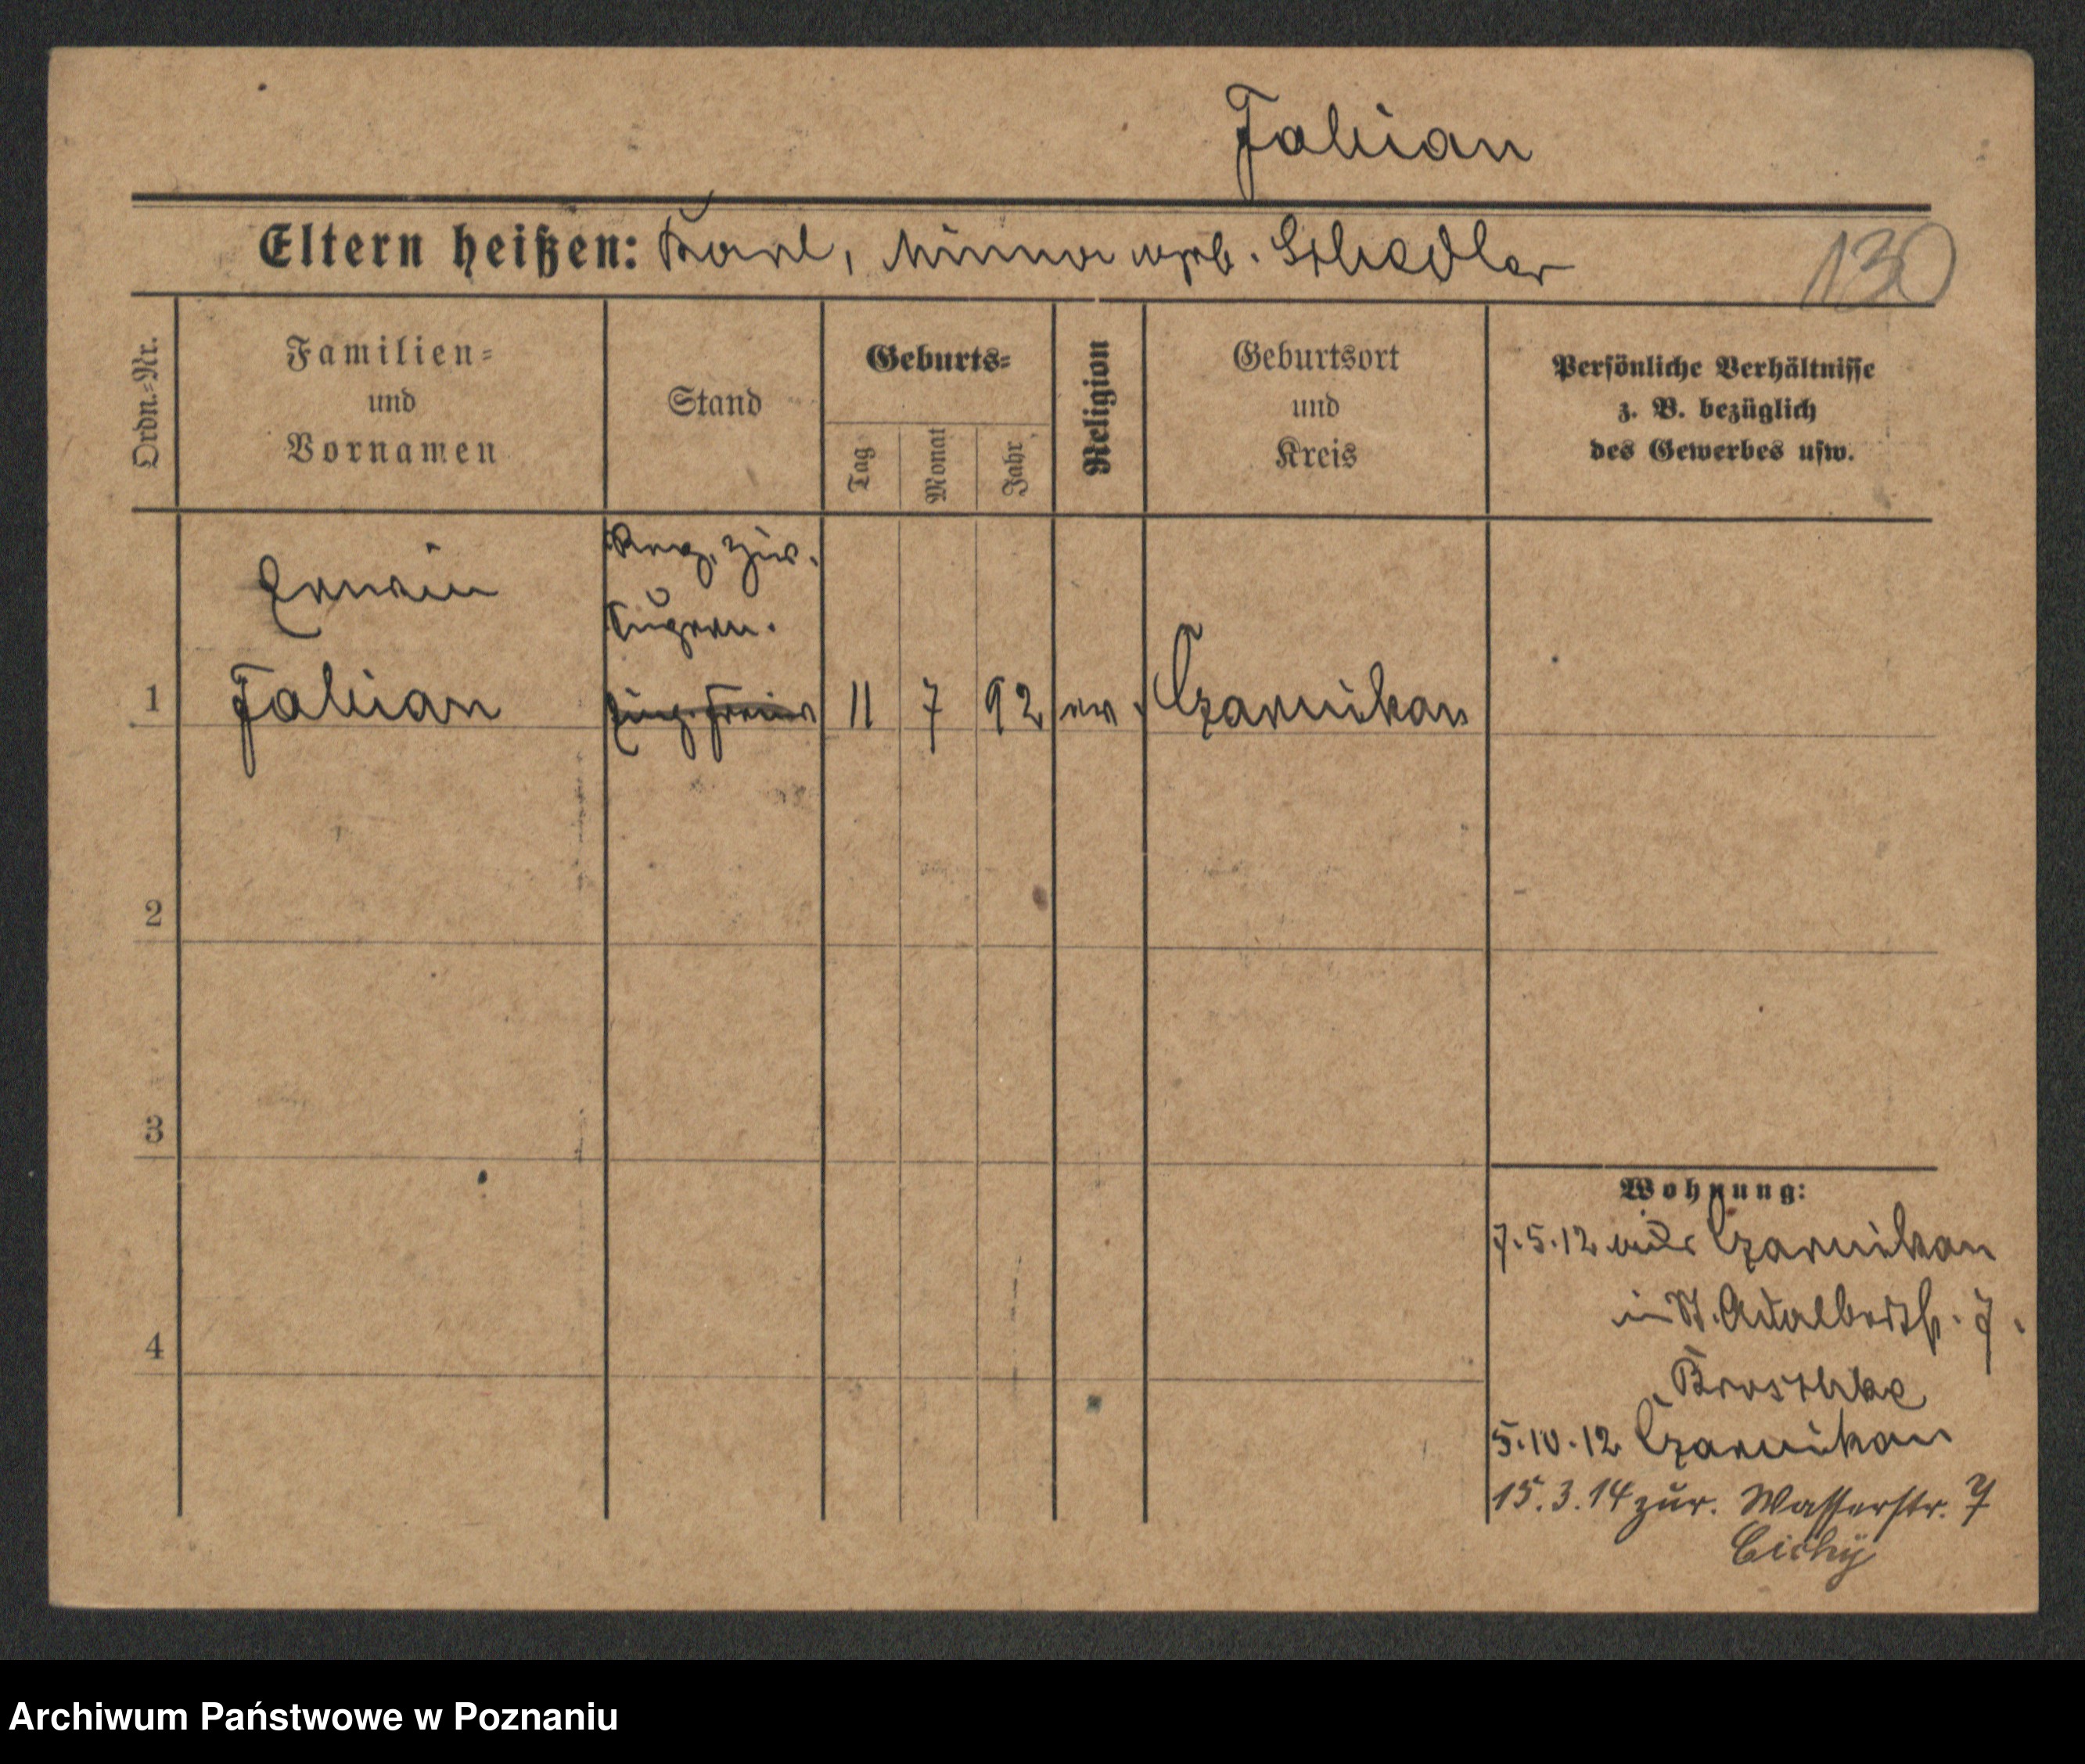 Fabian
Eltern heißen: Karl, Minna geb. Schedler
130
Ordn.=Nr.
Familien=
und
Vornamen
Stand
Geburts=
Tag
Monat
Jahr
Religion
Geburtsort
und
Kreis
Persönliche Verhältnisse
z. B. bezüglich
des Gewerbes usw.
Reg. Ziv.
Erwin
Supern.
1 Fabian 11 7 92 ev. Czarnikau
2
3
4
Wohnung:
7.5.12 aus Czarnikau
in St. Adalbertstr. 7.
Broschke
5.10.12 Czarnikau
15.3.14 zur. Wasserstr. 7
Cichy
Archiwum Państwowe w Poznaniu